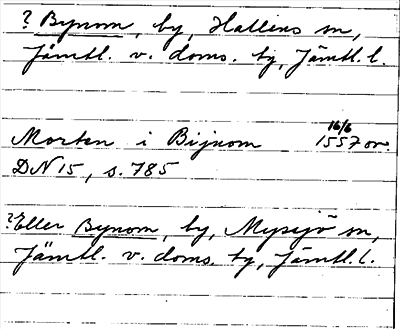 ? Bynom, by, Hallens sn,
Jämtl. v. doms. tg, Jämtl. l.
Morten i Bijnom 16/6 1557 or.
DN 15, s. 785
? Eller Bynom, by, Myssjö sn,
Jämtl. v. doms. tg, Jämtl. l.